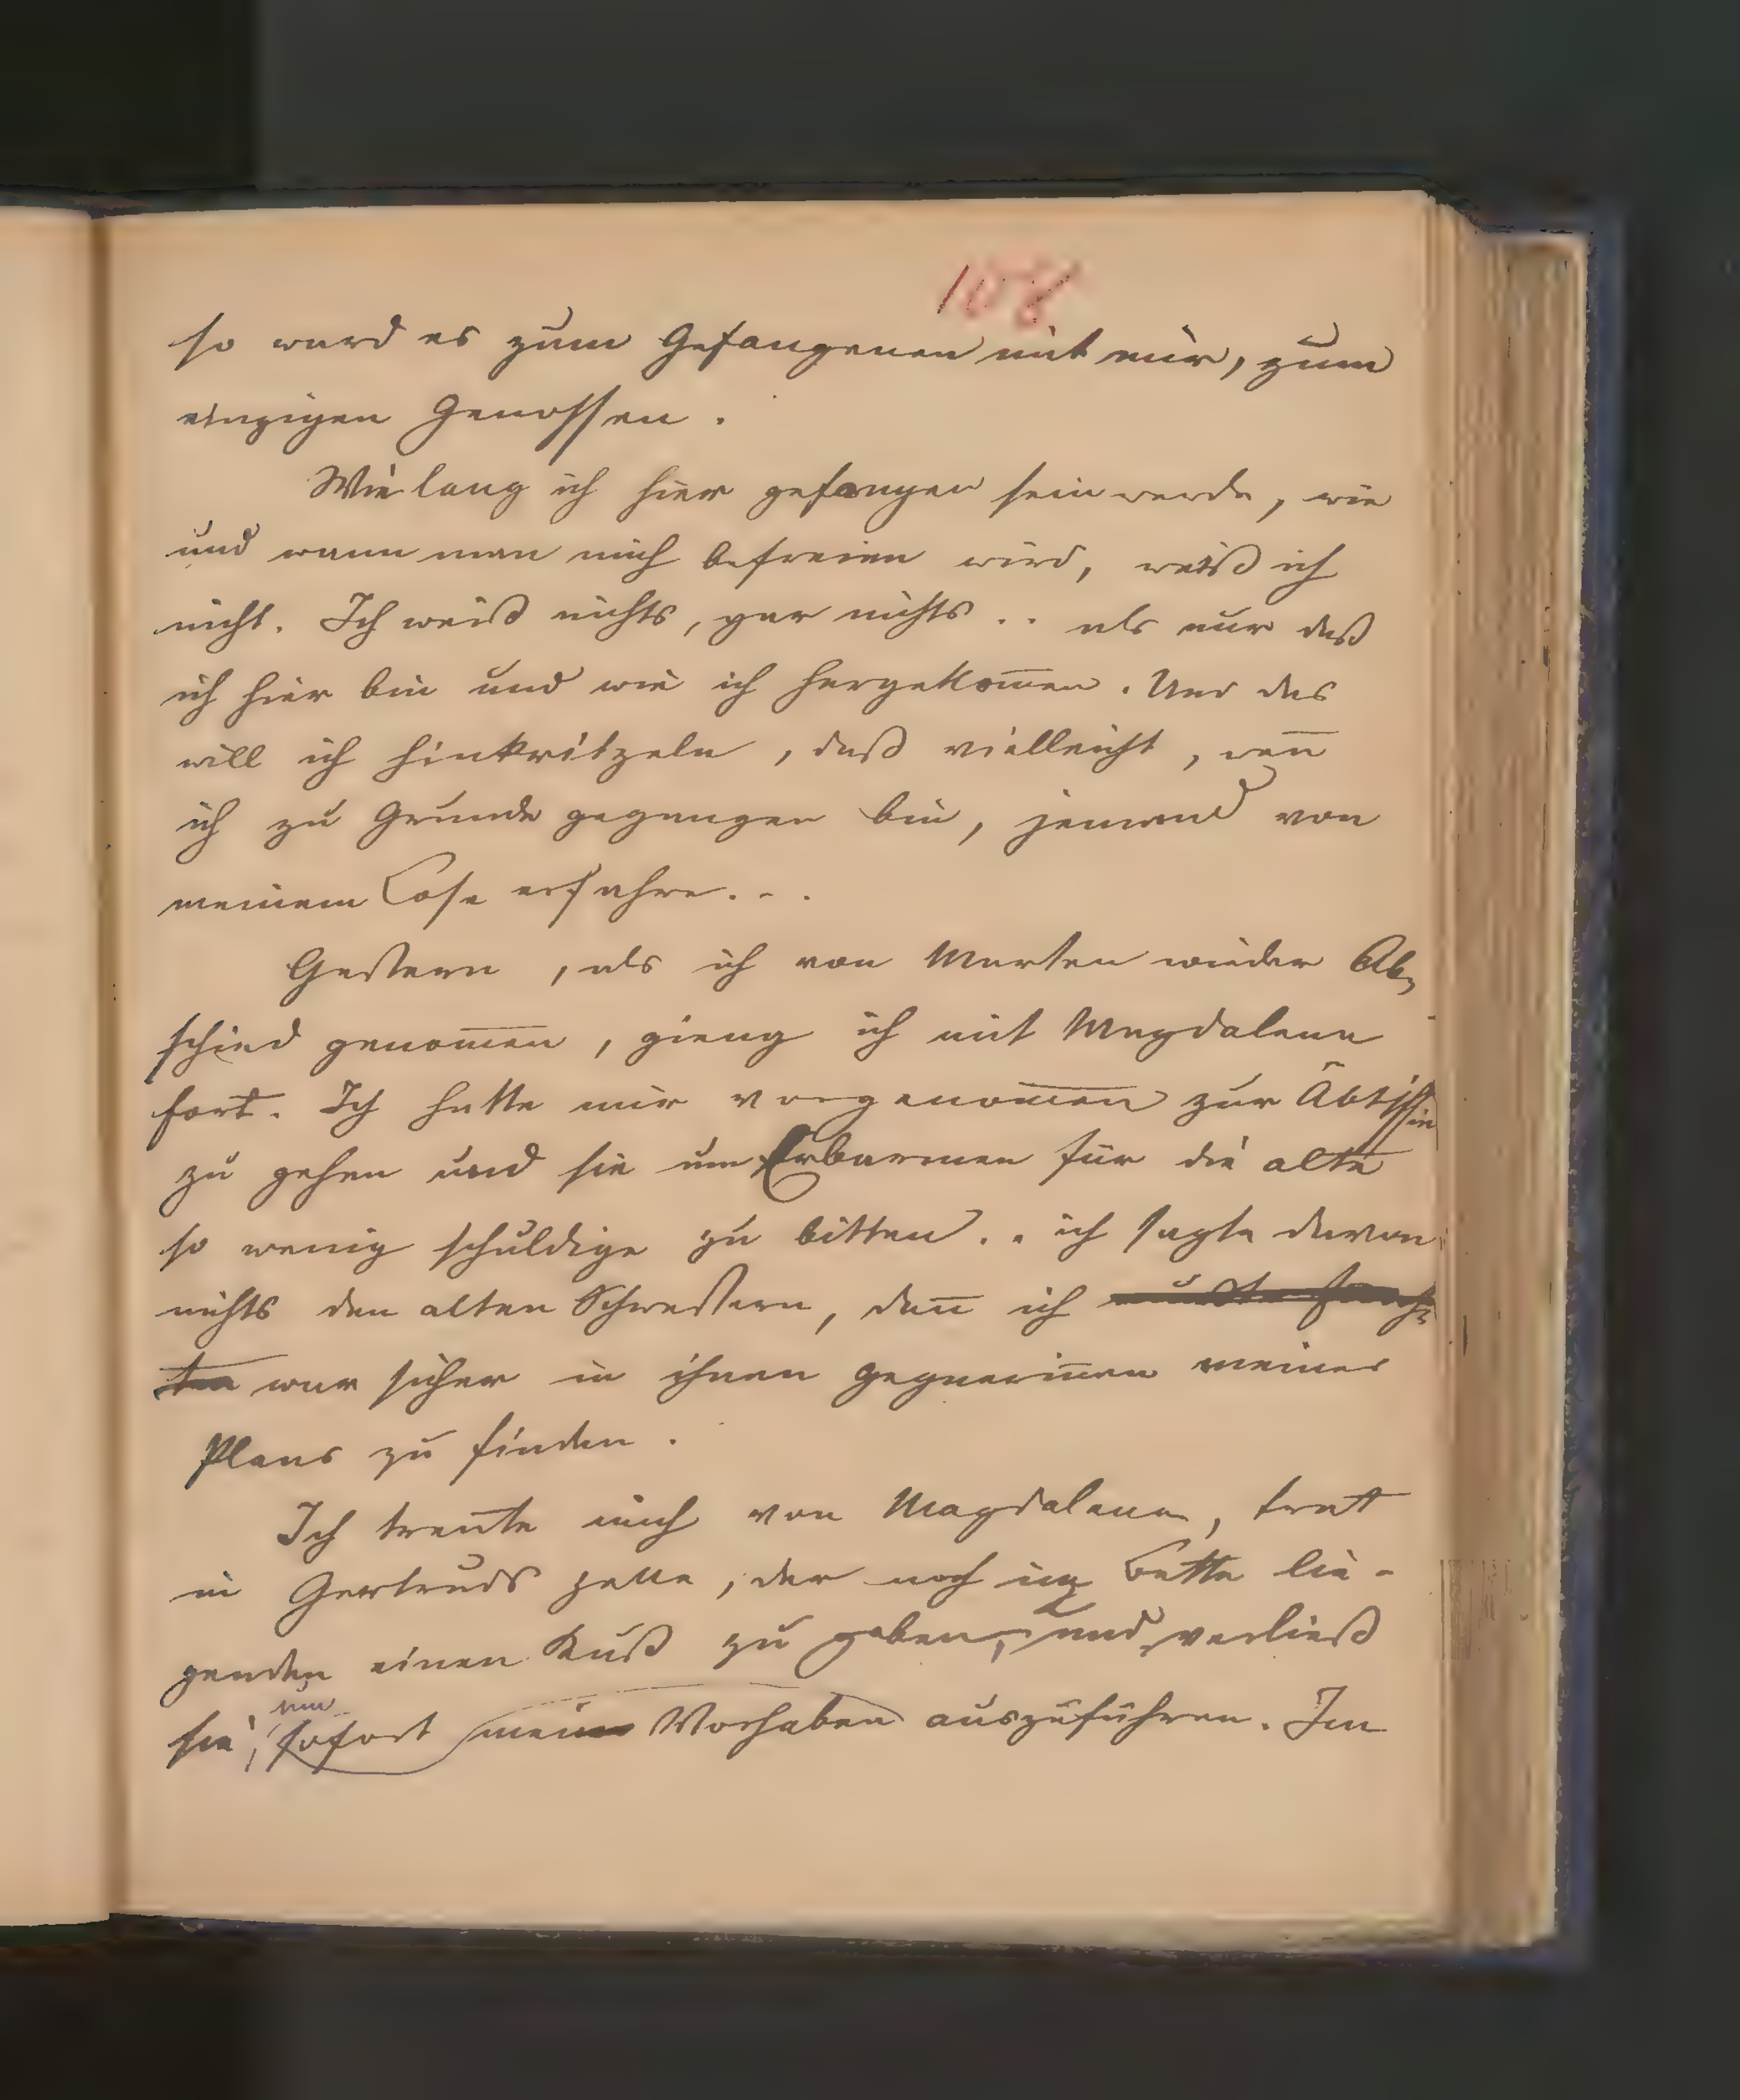 108
so ward es zum Gefangenen mit mir, zum
einzigen Genossen.
Wie lang ich hier gefangen sein werde, wie
und wann man mich befreien wird, weiß ich
nicht. Ich weiß nichts, gar nichts .. als nur daß
ich hier bin und wie ich hergekom̄en. Und das
will ich hinkritzeln, daß vielleicht, wen̄
ich zu Grunde gegangen bin, jemand von
meinem Lose erfahre...
Gestern, als ich von Marten wieder Ab-
schied genom̄en, gieng ich mit Magdalena
fort. Ich hatte mir vorgenom̄en zur Äbtissin
zu gehen und sie um Erbarmen für die alte
so wenig schuldige zu bitten .. ich sagte davon
nichts den alten Schwestern, den̄ ich mußte fürch-
ten war sicher in ihnen gegnerin̄en meines
Plans zu finden.
Ich tren̄te mich von Magdalena, trat
in Gertruds zelle, der noch im Bette lie-
genden einen Kuß zu geben, und verließ
um
sie, sofort mein Vorhaben auszuführen. Im